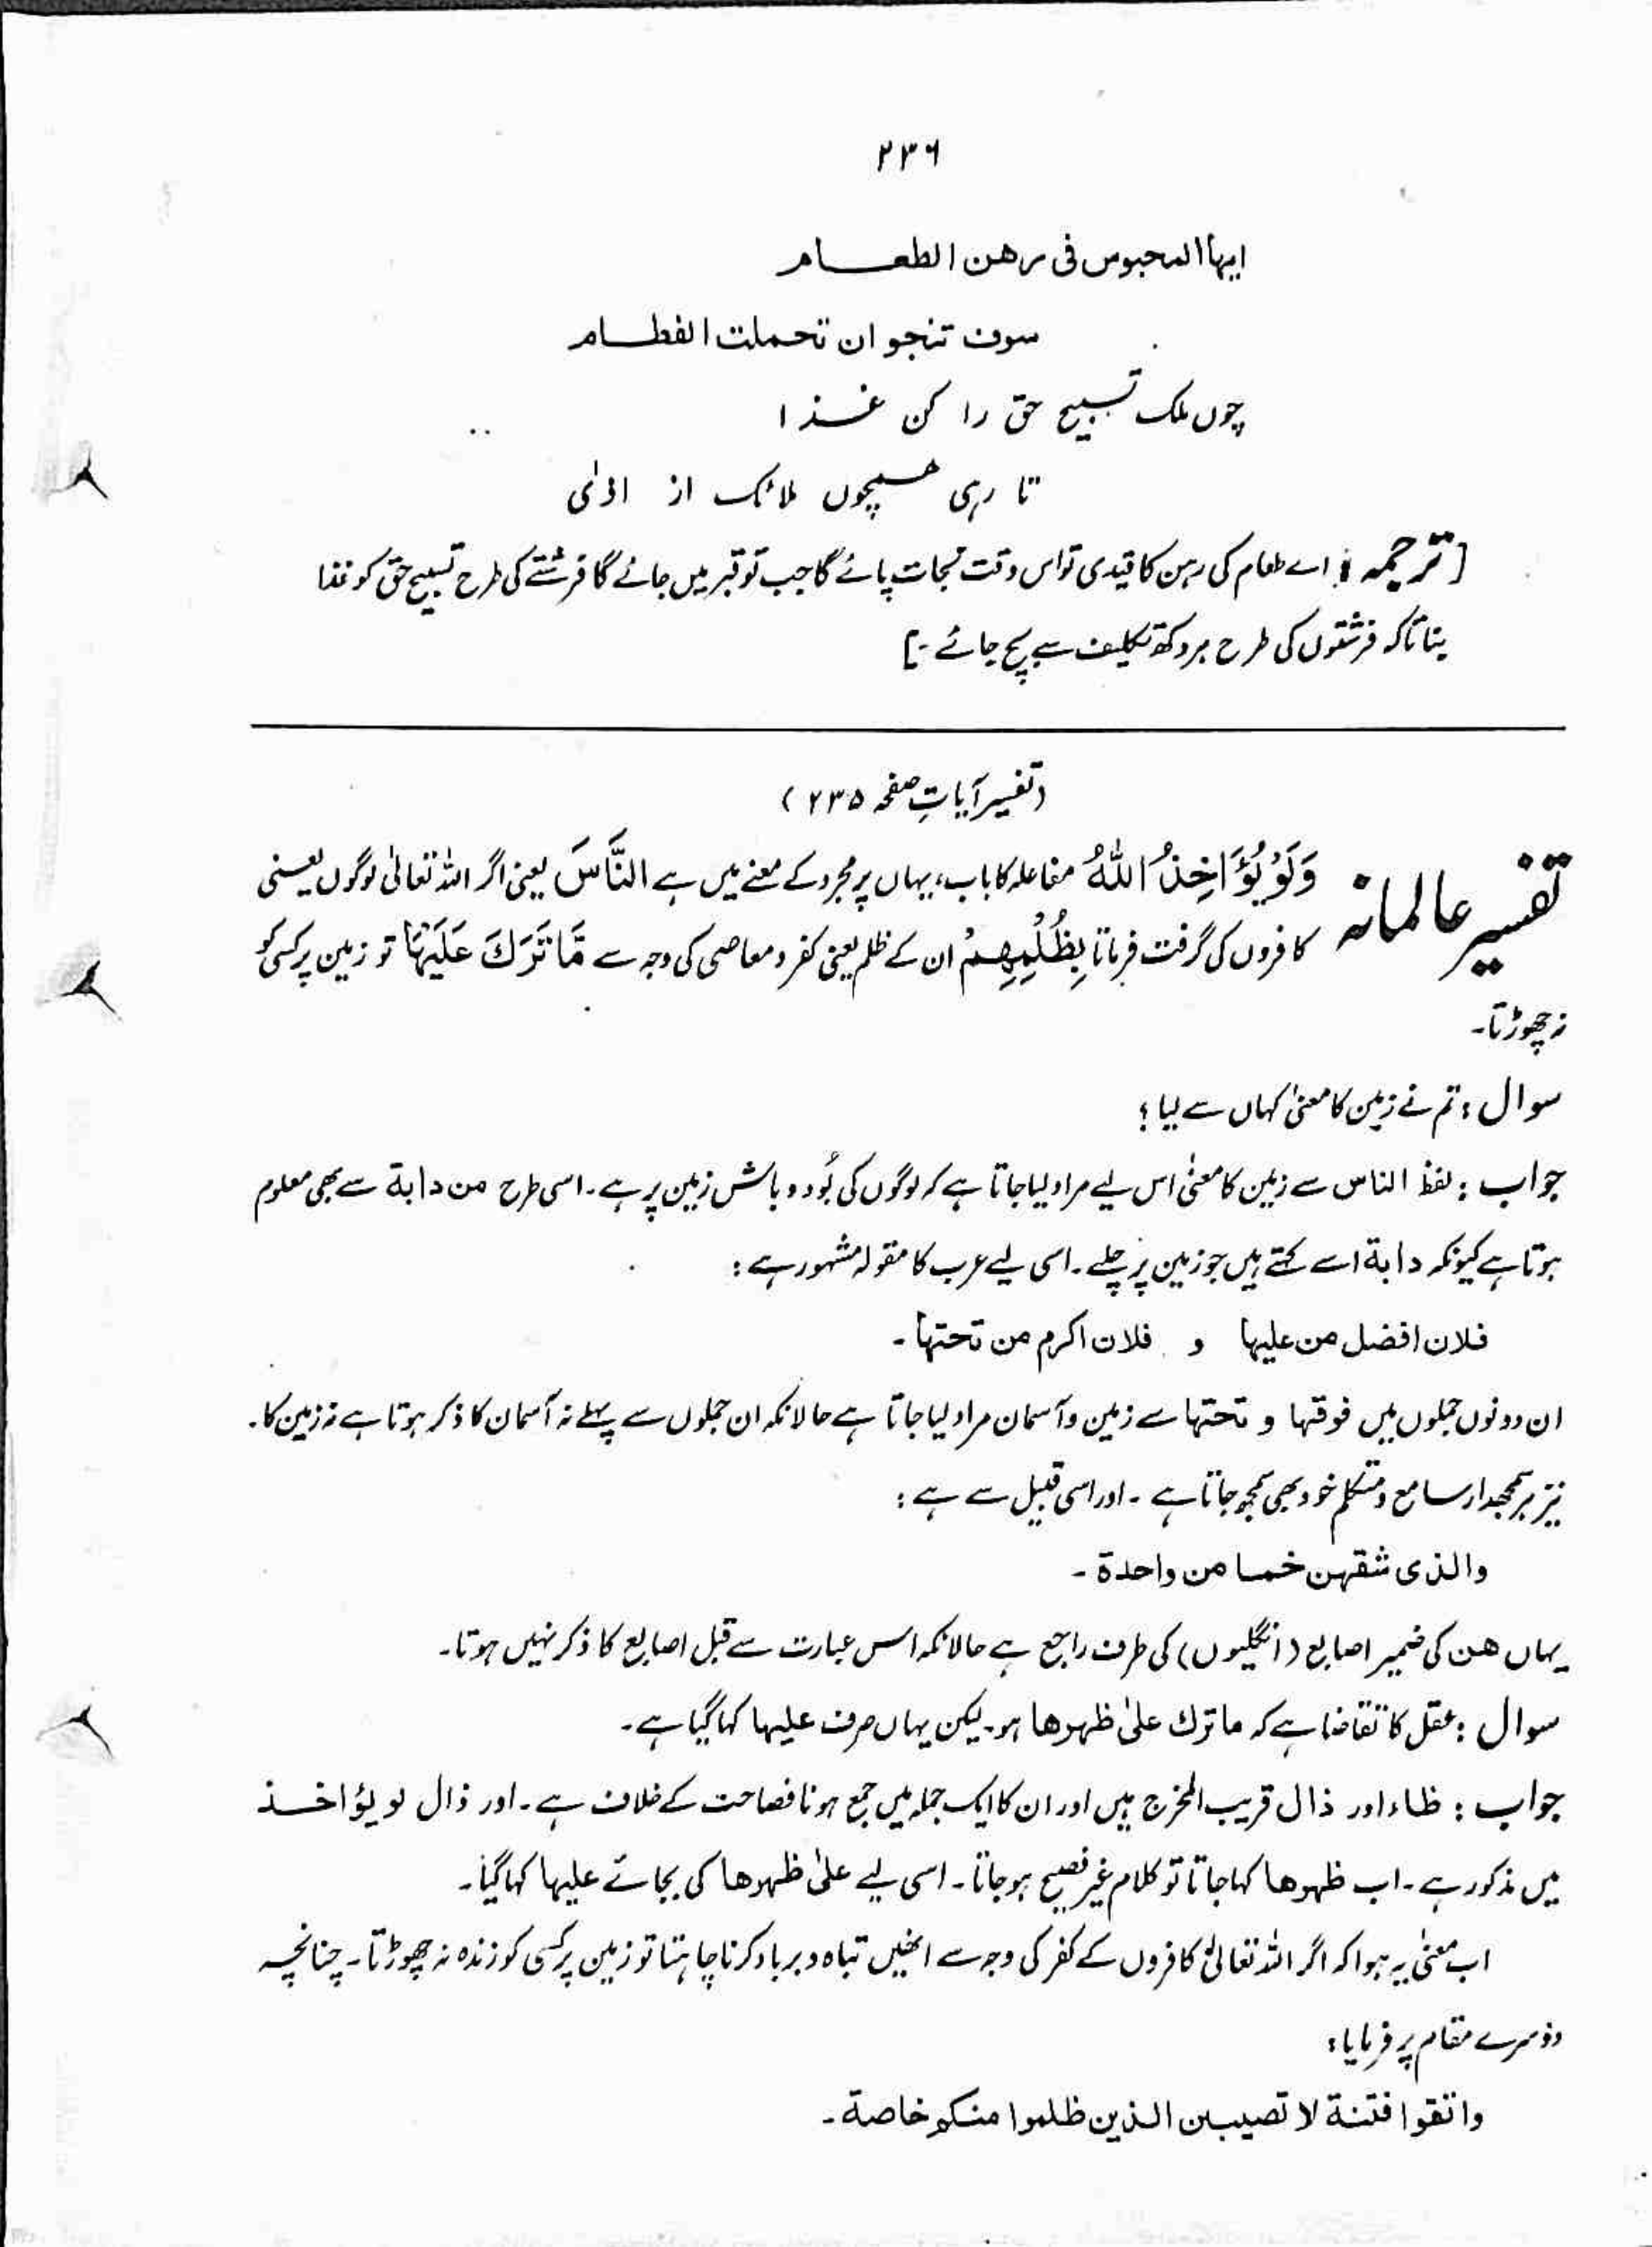 ۲۳۶
ایها المحبوس فی رهن الطعام
سوف تنجو ان تحملت الفطام
چوں ملک تسبیح حق را کن غذا
تا رہی ہمچوں ملائک از اذٰی
[ترجمہ : اے طعام کی رہن کا قیدی تو اس وقت نجات پائے گا جب تو قبر میں جائے گا فرشتے کی طرح تسبیح حق کو غذا
بنا تاکہ فرشتوں کی طرح ہر دکھ تکلیف سے بچ جائے۔]
(تفسیر آیاتِ صفحہ ۲۳۵)
تفسیر عالمانہ وَلَوْ یُؤَاخِذُ اللّٰهُ مفاعلہ کا باب، یہاں پر مجرد کے معنے میں ہے النَّاسَ یعنی اگر اللہ تعالیٰ لوگوں یعنی
کافروں کی گرفت فرماتا بِظُلْمِهِمْ ان کے ظلم یعنی کفر و معاصی کی وجہ سے مَّا تَرَكَ عَلَیْهَا تو زمین پر کسی کو
نہ چھوڑتا۔
سوال : تم نے زمین کا معنیٰ کہاں سے لیا ؟
جواب : لفظ الناس سے زمین کا معنیٰ اس لیے مراد لیا جاتا ہے کہ لوگوں کی بُود و باش زمین پر ہے۔ اسی طرح من دابة سے بھی معلوم
ہوتا ہے کیونکہ دابة اسے کہتے ہیں جو زمین پر چلے۔ اسی لیے عرب کا مقولہ مشہور ہے :
فلان افضل من علیها و فلان اکرم من تحتها۔
ان دونوں جملوں میں فوقها و تحتها سے زمین و آسمان مراد لیا جاتا ہے حالانکہ ان جملوں سے پہلے نہ آسمان کا ذکر ہوتا ہے نہ زمین کا۔
نیز ہر سمجھدار سامع و متکلم خود بھی سمجھ جاتا ہے۔ اور اسی قبیل سے ہے :
والذی شقهن خمسا من واحدة۔
یہاں هن کی ضمیر اصابع (انگلیوں) کی طرف راجع ہے حالانکہ اس عبارت سے قبل اصابع کا ذکر نہیں ہوتا۔
سوال : عقل کا تقاضا ہے کہ ما ترك علیٰ ظهرها ہو۔ لیکن یہاں صرف علیها کہا گیا ہے۔
جواب : ظاء اور ذال قریب المخرج ہیں اور ان کا ایک جملہ میں جمع ہونا فصاحت کے خلاف ہے۔ اور ذال لو یؤاخذ
میں مذکور ہے۔ اب ظهرها کہا جاتا تو کلام غیر فصیح ہو جاتا۔ اسی لیے علیٰ ظهرها کی بجائے علیها کہا گیا۔
اب معنیٰ یہ ہوا کہ اگر اللہ تعالیٰ کافروں کے کفر کی وجہ سے انھیں تباہ و برباد کرنا چاہتا تو زمین پر کسی کو زندہ نہ چھوڑتا۔ چنانچہ
دوسرے مقام پر فرمایا :
واتقوا فتنة لا تصیبن الذین ظلموا منکم خاصة۔